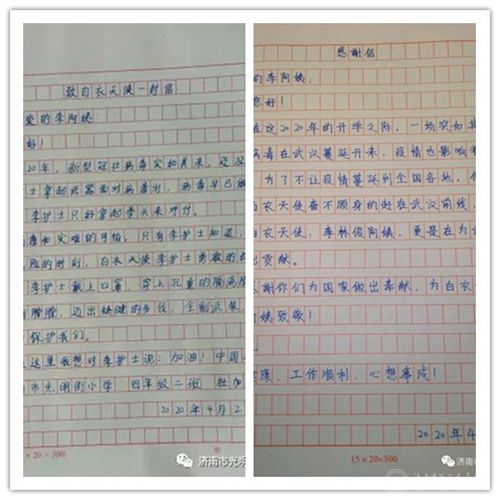 致白衣天使一封信
爱的李阿姨：
好！
20年，新型冠状病毒突如其来，还没
士拿起武器面对病毒时，病毒早已
李护士只好拿起拳头来对付。
毒和灾难的可怕，只有李护士知道，
险的时刻，白衣天使李护士勇敢的
李护士戴上口罩，穿上沉重的隔离服
迈出矫健的步伐，全副武装，
保护我们。
这里我想对李护士说：加油！中国
市光明街小学 四年级二班
2020年4月2
× 20 = 300)
济南市光明
感谢信
的李阿姨：
您好！
在这2020年的开学之际，一场突如其
病毒在武汉蔓延开来，疫情也影响
为了不让疫情蔓延到全国各地，
白衣天使奋不顾身的赶在武汉前线，
白衣天使：李林俊阿姨，更是在为
出贡献。
谢你们为国家做出奉献，为白衣
姨致敬！
健康、工作顺利、心想事成！
2020年4
15×20=300
济南